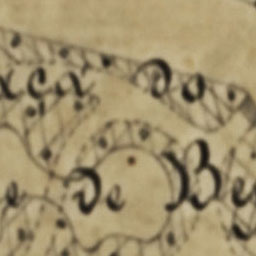 xca do
e De Be